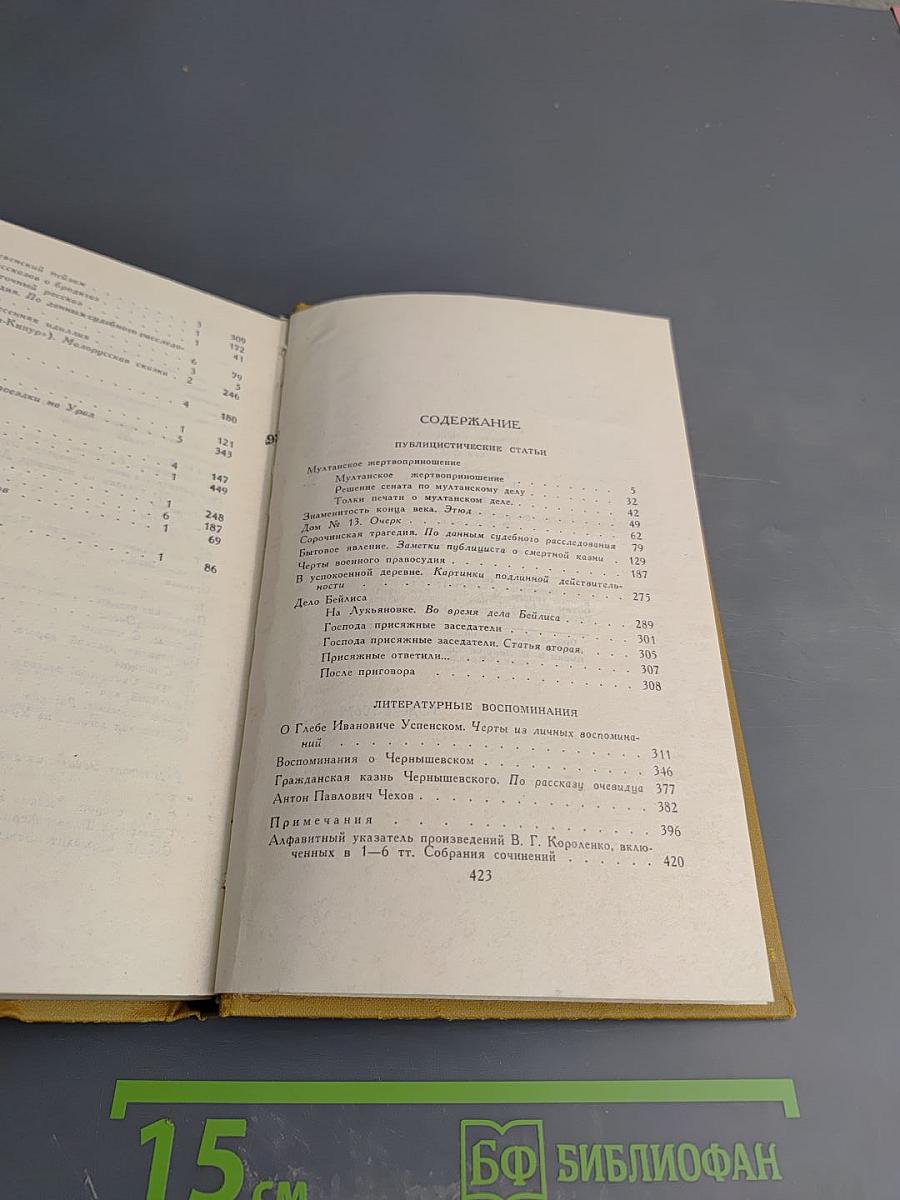 венский пейзаж
ссказов о бродягах . . . . 3 309
точный рассказ . . . . 1 172
дия. По данным судебного расследо-
1 41
есенняя идиллия . . . . 6 79
-Кипур»). Малорусская сказка . 3 5
2 246
4 180
поездки на Урал . . . . 1 121
5 343
4 147
1 449
ов . . . . 1 248
6 187
1 69
1 86
СОДЕРЖАНИЕ
ПУБЛИЦИСТИЧЕСКИЕ СТАТЬИ
Мултанское жертвоприношение
Мултанское жертвоприношение . . . . . . . 5
Решение сената по мултанскому делу . . . . . . 32
Толки печати о мултанском деле. . . . . . . 42
Знаменитость конца века. Этюд . . . . . . . . 49
Дом № 13. Очерк . . . . . . . . . . . 62
Сорочинская трагедия. По данным судебного расследования 79
Бытовое явление. Заметки публициста о смертной казни . 129
Черты военного правосудия . . . . . . . . . 187
В успокоенной деревне. Картинки подлинной действитель-
ности . . . . . . . . . . . . . 275
Дело Бейлиса
На Лукьяновке. Во время дела Бейлиса . . . . . 289
Господа присяжные заседатели . . . . . . . 301
Господа присяжные заседатели. Статья вторая. . . . 305
Присяжные ответили... . . . . . . . . . 307
После приговора . . . . . . . . . . . 308
ЛИТЕРАТУРНЫЕ ВОСПОМИНАНИЯ
О Глебе Ивановиче Успенском. Черты из личных воспомина-
ний . . . . . . . . . . . . . . 311
Воспоминания о Чернышевском . . . . . . . . 346
Гражданская казнь Чернышевского. По рассказу очевидца 377
Антон Павлович Чехов . . . . . . . . . . 382
Примечания . . . . . . . . . . . . 396
Алфавитный указатель произведений В. Г. Короленко, вклю-
ченных в 1—6 тт. Собрания сочинений . . . . . . 420
423
15 см
БФ БИБЛИОФАН